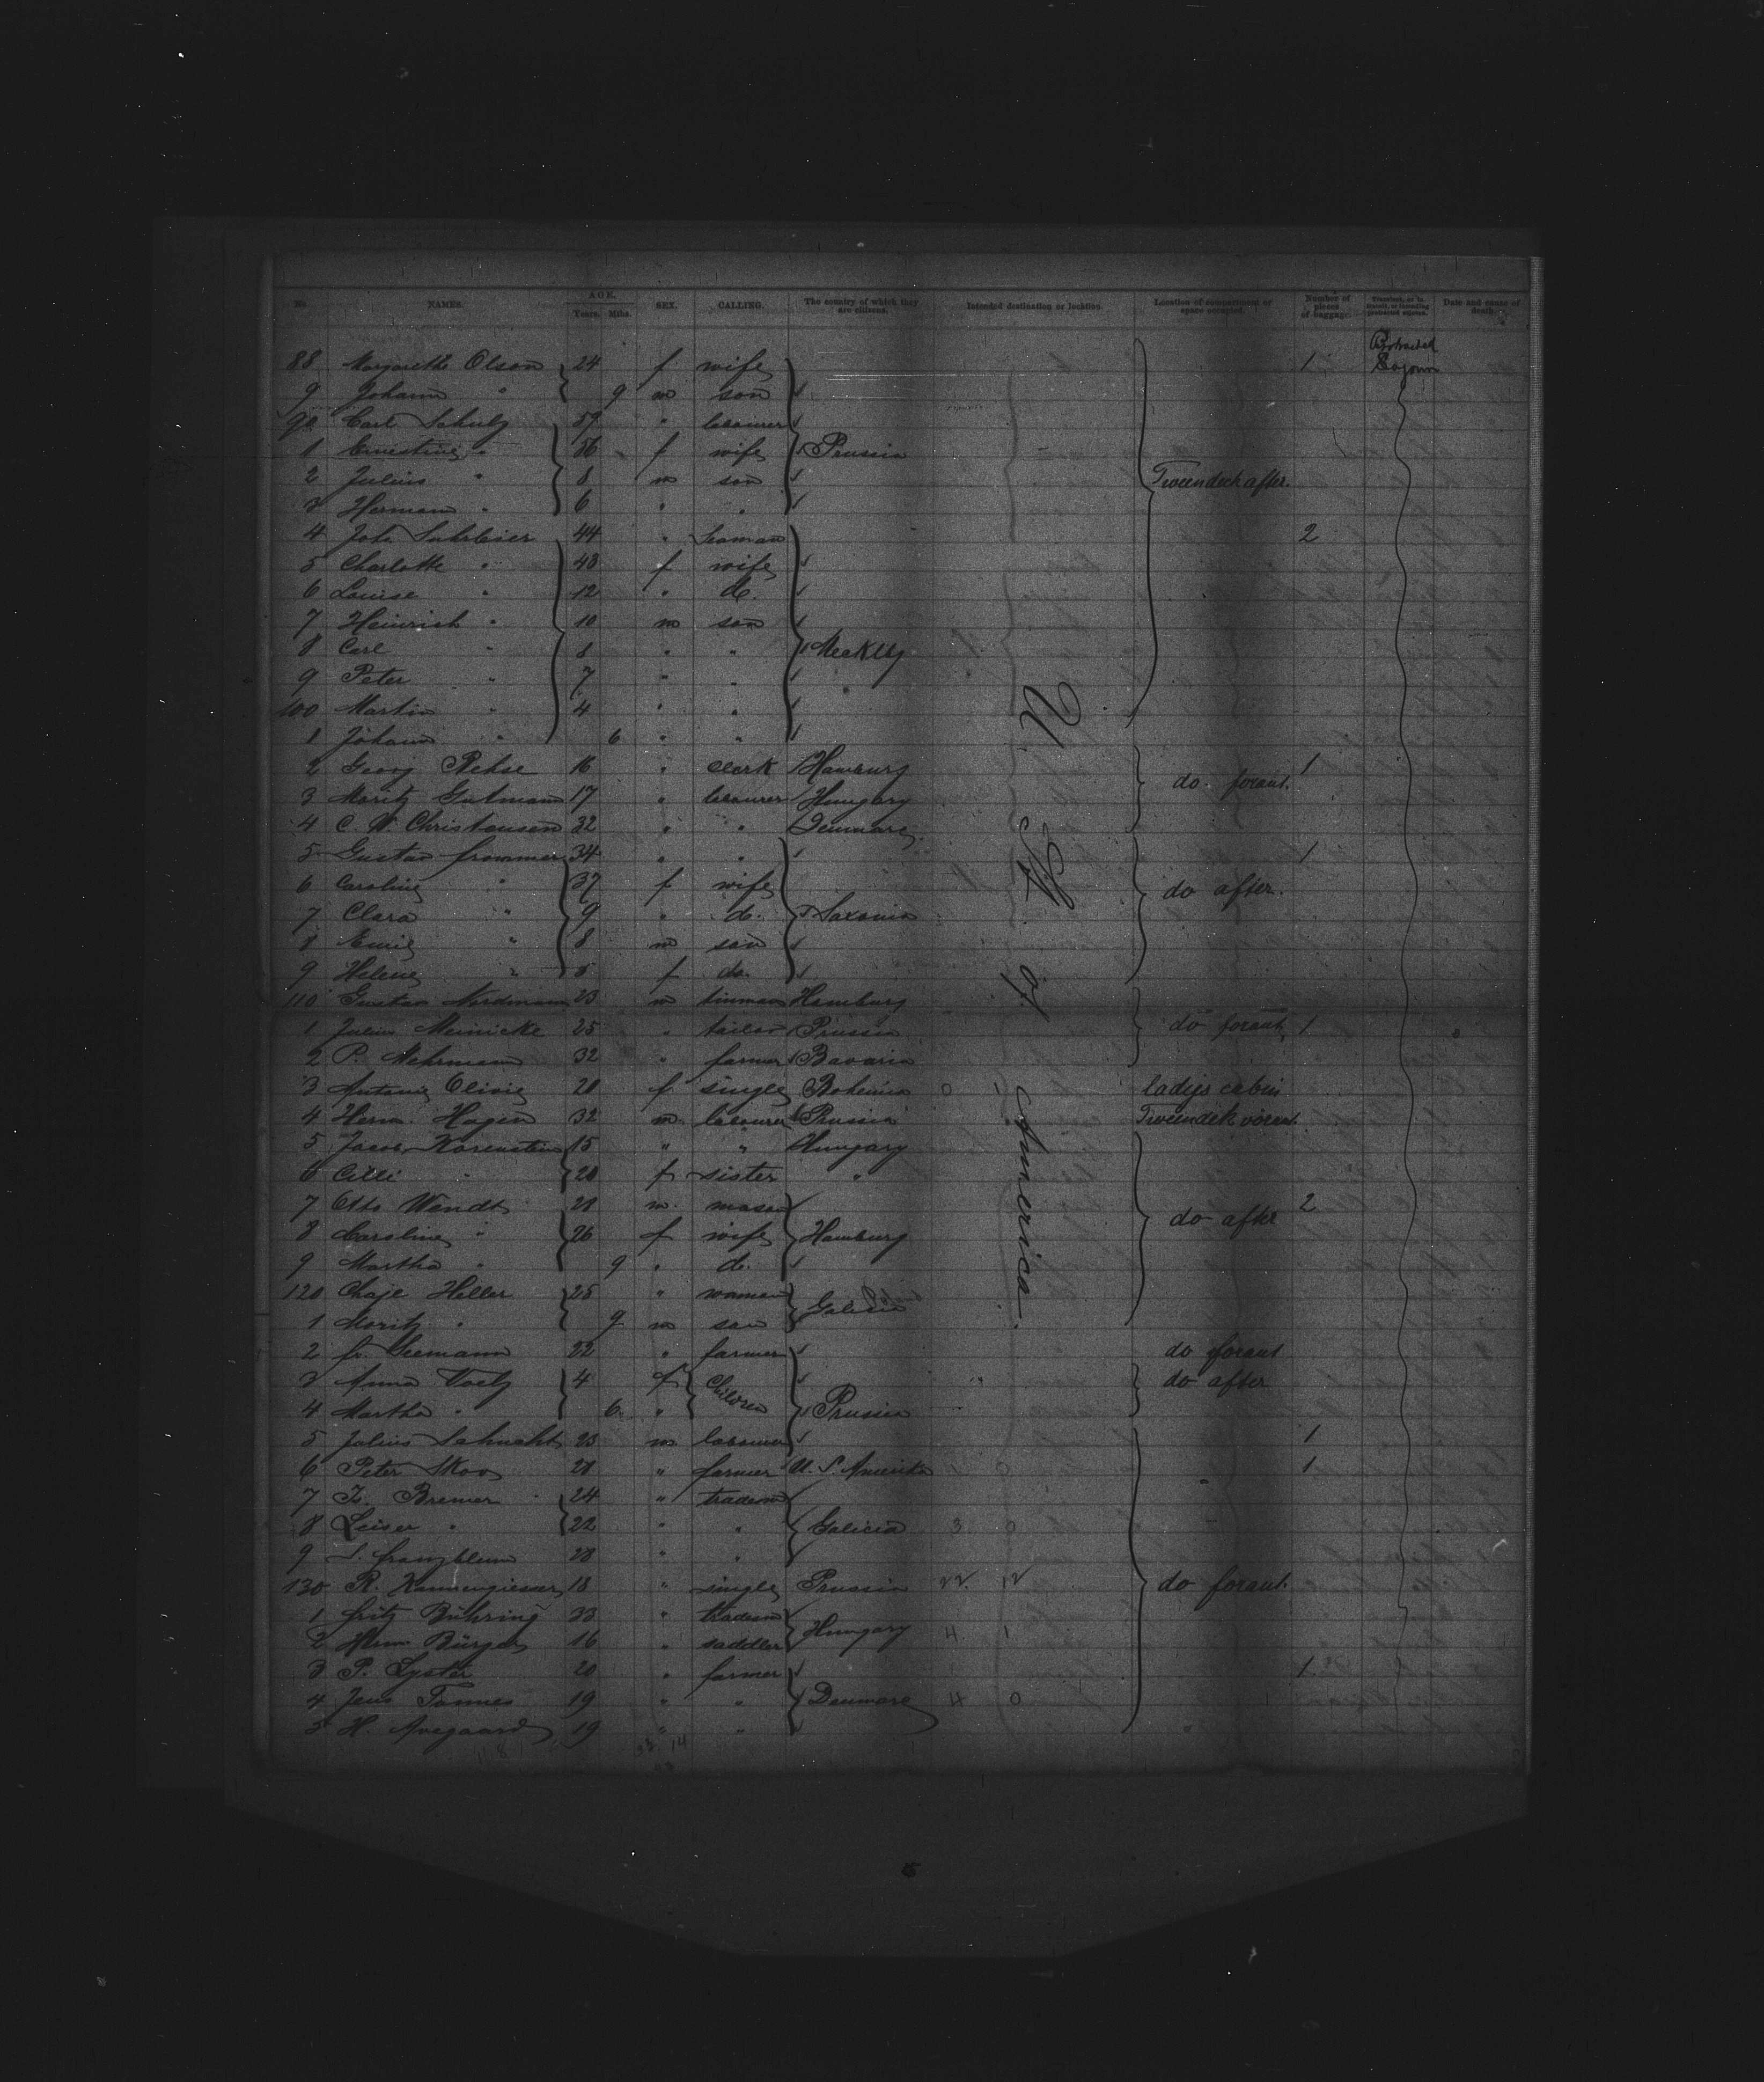 No. NAMES. AGE. Years. Mths. SEX. CALLING. The country of which they are citizens. Intended destination or location. Location of compartment or space occupied. Number of pieces of baggage. Date and cause of death.
88 Margarethe Olson 24 f wife 1
9 Johann " 9 m son
90 Carl Schulz 59 " labourer
1 Ernestine " 56 f wife Prussia
2 Julius " 8 m son Tweendeck after.
3 Hermann " 6 " "
4 Joh. Suhrbier 44 " Seaman 2
5 Charlotte " 43 f wife
6 Louise " 12 " do.
7 Heinrich " 10 m son
8 Carl " 8 " " Mecklbg
9 Peter " 7 " "
100 Martin " 4 " "
1 Johann " 6 " "
2 Georg Rehse 16 " clerk Hamburg 1
3 Moritz Gutmann 17 " labourer Hungary do foraut.
4 C. W. Christensen 32 " " Denmark
5 Gustav Frommer 34 " " 1
6 Caroline " 37 f wife do after.
7 Clara " 9 " do. Saxonia
8 Emil " 8 m son
9 Helene " 5 f do.
110 Gustav Nordmann 23 m tinman Hamburg
1 Julius Meinicke 25 " tailor Prussia do foraut 1
2 P. Mehrmann 32 " farmer Bavaria
3 Antonie Olivie 20 f single Bohemia 0 ladys cabin
4 Herm. Hagen 32 m labourer Prussia Tweendek voraut
5 Jacob Korenstein 15 " " Hungary
6 Cilli " 20 f sister "
7 Otto Wendt 28 m mason 2
8 Caroline " 26 f wife Hamburg do after
9 Martha " 9 " do.
120 Chaje Heller 25 " woman Galicia
1 Moritz " 9 m son
2 Fr. Seemann 22 " farmer do foraut
3 Anna Voelz 4 f Children do after
4 Martha " 6 " Prussia
5 Julius Schucht 23 m labourer 1
6 Peter Skov 28 " farmer U. S. Amerika 1 0 1
7 I. Bremer 24 " tradesm
8 Leiser " 22 " " Galicia 3 0
9 S. Franzblum 28 " "
130 R. Kannengiesser 18 " single Prussia 22 12 do foraut.
1 Fritz Bühring 33 " tradesm
2 Herm Bürger 16 " saddler Hungary 4 1
3 P. Lyster 20 " farmer 1
4 Jens Tonnes 19 " " Denmark 4 0
5 H. Avegaard 19 " "
U. St. of America.